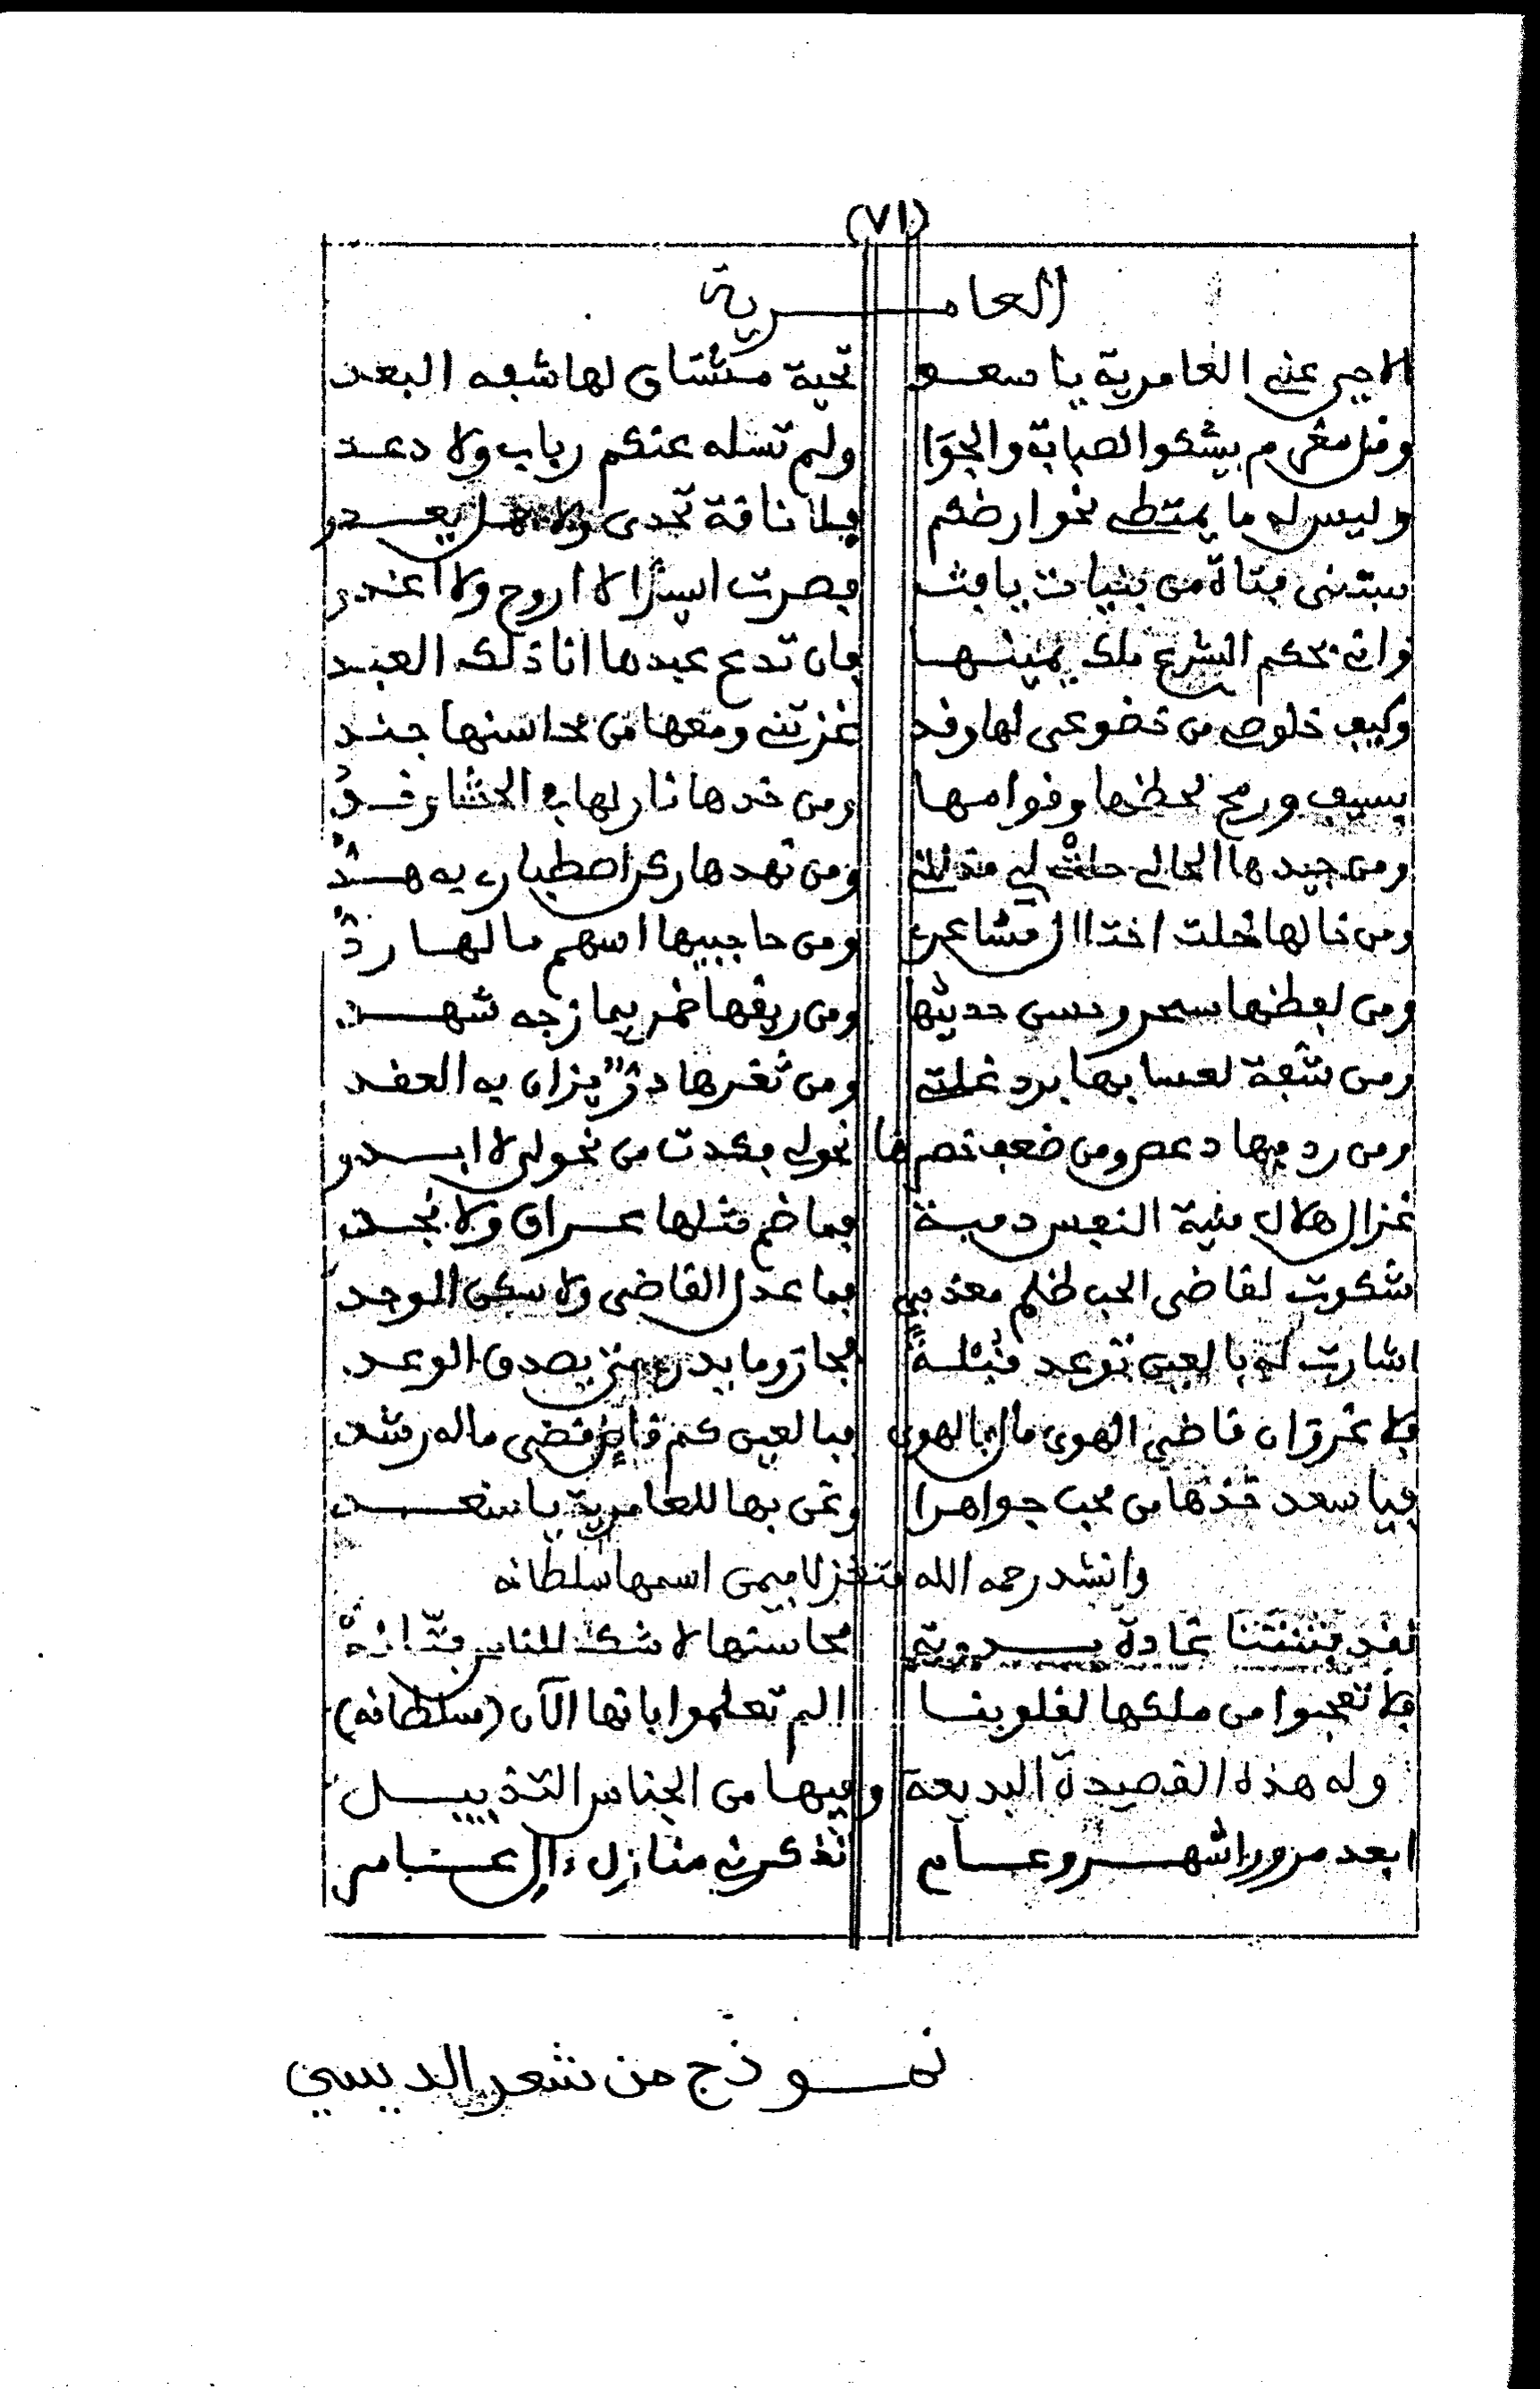 (٧١)
العامرية
الا حي عني العامرية يا سعد تحية مشتاق لها شفه البعد
وقل مغرم يشكوا الصبابة والجوا ولم تسله عنكم رباب ولا دعد
وليس له ما يمتطي نحو ارضكم فلا ناقة تحدى ولا يعدو
سبتني فتاة من بنيات يافث فصرت اسيرا لا اروح ولا اغدو
واني بحكم الشرع ملك يمينها فان تدع عبدها انا ذلك العبد
وكيف خلوصي من خضوعي لها وقد غزتني ومعها من محاسنها جند
بسيف ورمح لحظها وقوامها ومن خدها نار لها في الحشا وقد
ومن جيدها الحالي حلت لي مذلتي ومن نهدها ركن اصطباري به هد
ومن خالها نحلت اختال مشاعري ومن حاجبيها اسهم ما لها رد
ومن لفظها سحر وحسن حديثها ومن ريقها خمر يمازجه شهد
ومن شفة لعسا بها برد غلتي ومن ثغرها در يزان به العقد
ومن ردفيها دعص ومن ضعف خصرها نحولي فكدت من نحولي لا ابدو
غزال هلال منية النفس دمية فما ضم مثلها عراق ولا نجد
شكوت لقاضي الحب ظلم معذبي فما عدل القاضي ولا سكن الوجد
اشارت له بالعين توعد قبلة فجار وما يدري متى يصدق الوعد
فلا غرو ان قاضي الهوى مال بالهوى فبالعين كم قاض قضى ماله رشد
فيا سعد خذها من محب جواهرا وغن بها للعامرية يا سعد
وانشد رحمه الله متغزلا فيمن اسمها سلطانه
لقد فتنتنا غادة بدوية محاسنها لا شك للناس فتانه
فلا تعجبوا من ملكها لقلوبنا الم تعلموا بانها الآن (سلطانه)
وله هذه القصيدة البديعة وفيها من الجناس التذييل
ابعد مرور اشهر وعام تذكرني منازل ءال عامر
نموذج من شعر الديسي